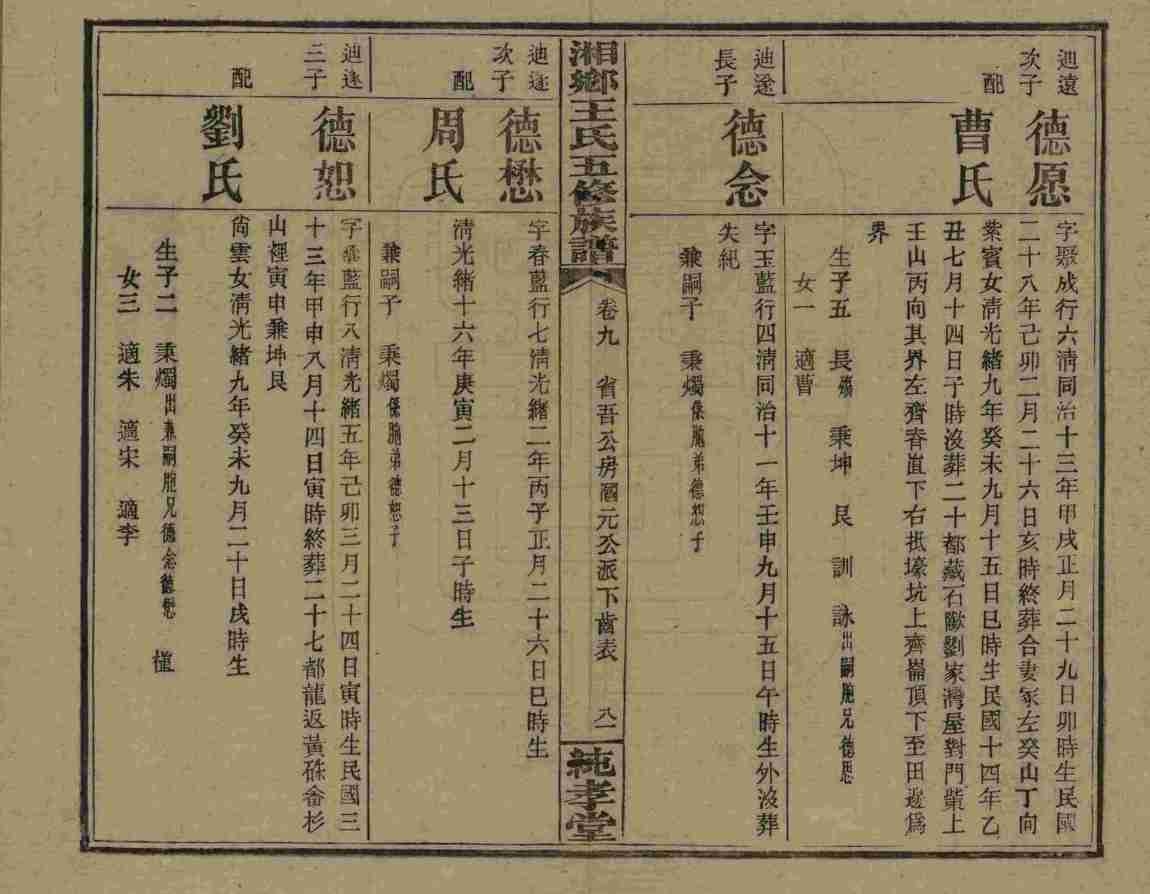 迪遠
次子
德愿
字聚成行六淸同治十三年甲戌正月二十九日卯時生民國
二十八年己卯二月二十六日亥時終葬合妻冢左癸山丁向
配
曹氏
業賓女淸光緒九年癸未九月十五日巳時生民國十四年乙
丑七月十四日子時沒葬二十都藏石歐劉家灣屋對門塋上
壬山丙向其界左齊春崀下右抵壕坑上齊崙頂下至田邊爲
界
生子五 長殤 秉坤 艮 訓 詠出嗣胞兄德思
女一 適曹
迪遂
長子
德念
字玉藍行四淸同治十一年壬申九月十五日午時生外沒葬
失紀
兼嗣子 秉燭係胞弟德恕子
湘鄉王氏五修族譜
卷九 省吾公房國元公派下齒表 八一
純孝堂
迪遂
次子
德懋
字春藍行七淸光緒二年丙子正月二十六日巳時生
配
周氏
淸光緒十六年庚寅二月十三日子時生
兼嗣子 秉燭係胞弟德恕子
迪遂
三子
德恕
字藍行八淸光緒五年己卯三月二十四日寅時生民國三
十三年甲申八月十四日寅時終葬二十七都龍返黃硃畬杉
山裡寅申兼坤艮
配
劉氏
尙雲女淸光緒九年癸未九月二十日戌時生
生子二 秉燭出兼嗣胞兄德念德懋 槿
女三 適朱 適宋 適李